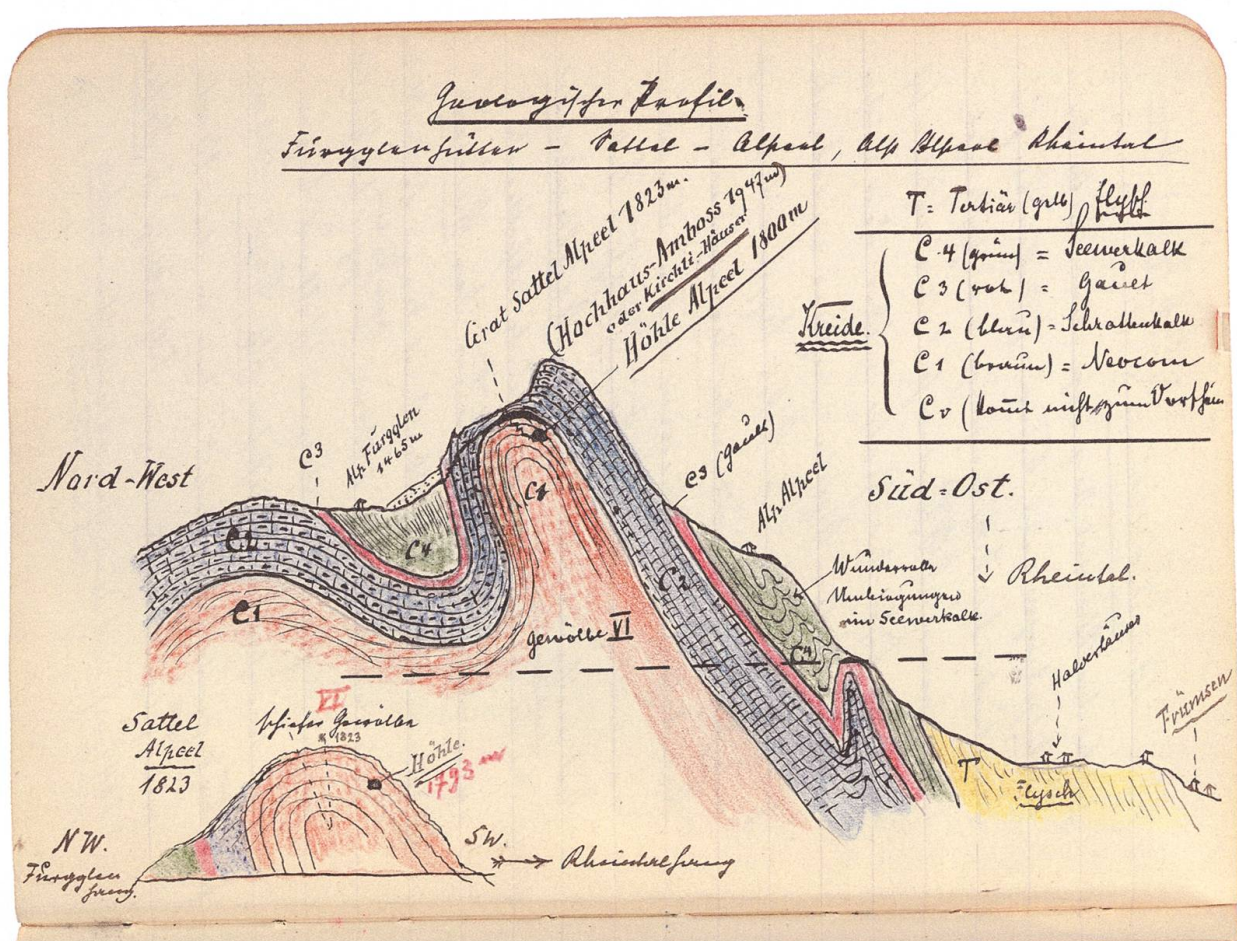 Geologisches Profil.
Furgglenhütten - Sattel - Alpeel, Alp Alpeel Rheintal
T = Tertiär (gelb) Flysch
Kreide.
C 4 (grün) = Seewerkalk
C 3 (rot) = Gault
C 2 (blau) = Schrattenkalk
C 1 (braun) = Neocom
Co (komt nicht zum Vorschein
Grat Sattel Alpeel 1823 m.
(Hochhaus-Amboss 1947 m)
oder Kirchli-Häuser
Höhle Alpeel 1800 m
Nord-West
C3
Alp Furgglen
1465 m
C3 (Gault)
Alp Alpeel
Süd-Ost.
Rheintal.
Wundervolle
Umbiegungen
im Seewerkalk.
C2
C4
C1
C1
C2
C4
Gewölbe VI
T
Flysch
Frümsen
VI
Sattel
Alpeel
1823
schiefes Gewölbe
1823
Höhle.
1793 m
NW.
Furgglen
hang.
SW.
Rheintalhang